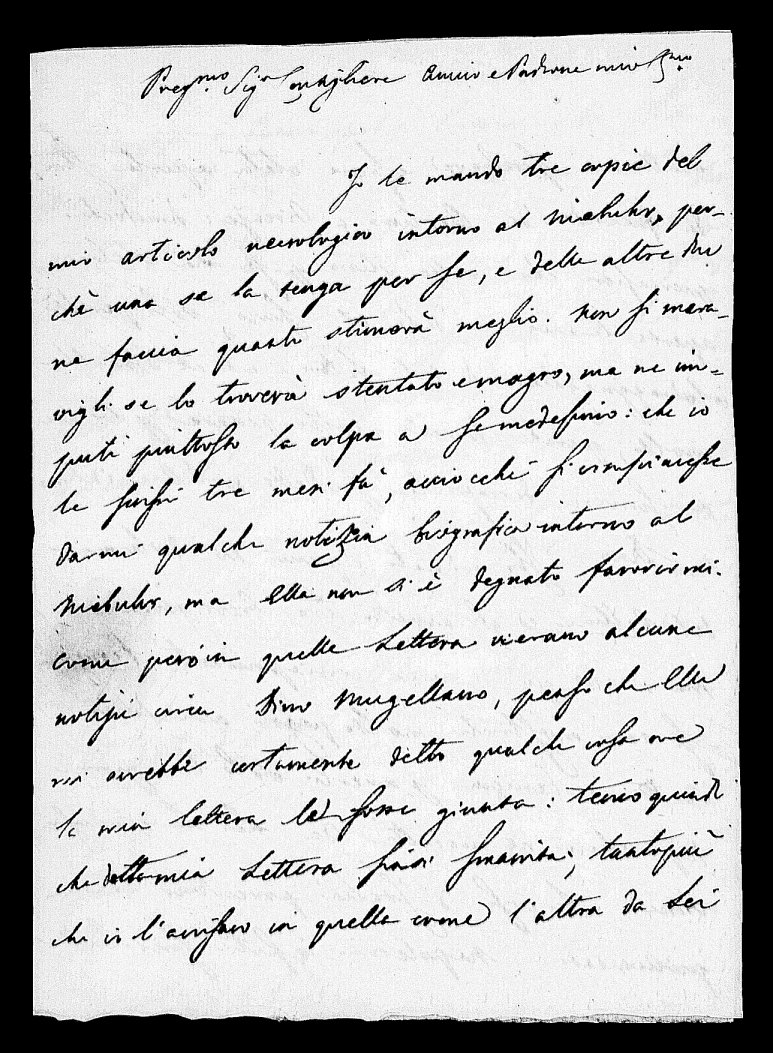 Preg.mo Sig.r Consigliere Amico e Padrone mio
Io le mando tre copie del
mio articolo necrologico intorno al Niebuhr, per-
chè una se la tenga per se, e delle altre due
ne faccia quanto stimerà meglio. Non si mara-
vigli se lo troverà stentato e magro, ma ne im-
puti piuttosto la colpa a se medesimo: che io
le scrissi tre mesi fà, acciocchè si compiacesse
darmi qualche notizia biografica intorno al
Niebuhr, ma Ella non si è degnato favorirmi.
Come però in quella Lettera vierano alcune
notizie circa Dino Mugellano, penso che Ella
mi avrebbe certamente detto qualche cosa ove
la mia lettera le fosse giunta: temo quindi
che detta mia Lettera siasi smarrita; tantopiù
che io l'avvisavo in quella come l'altra da Lei